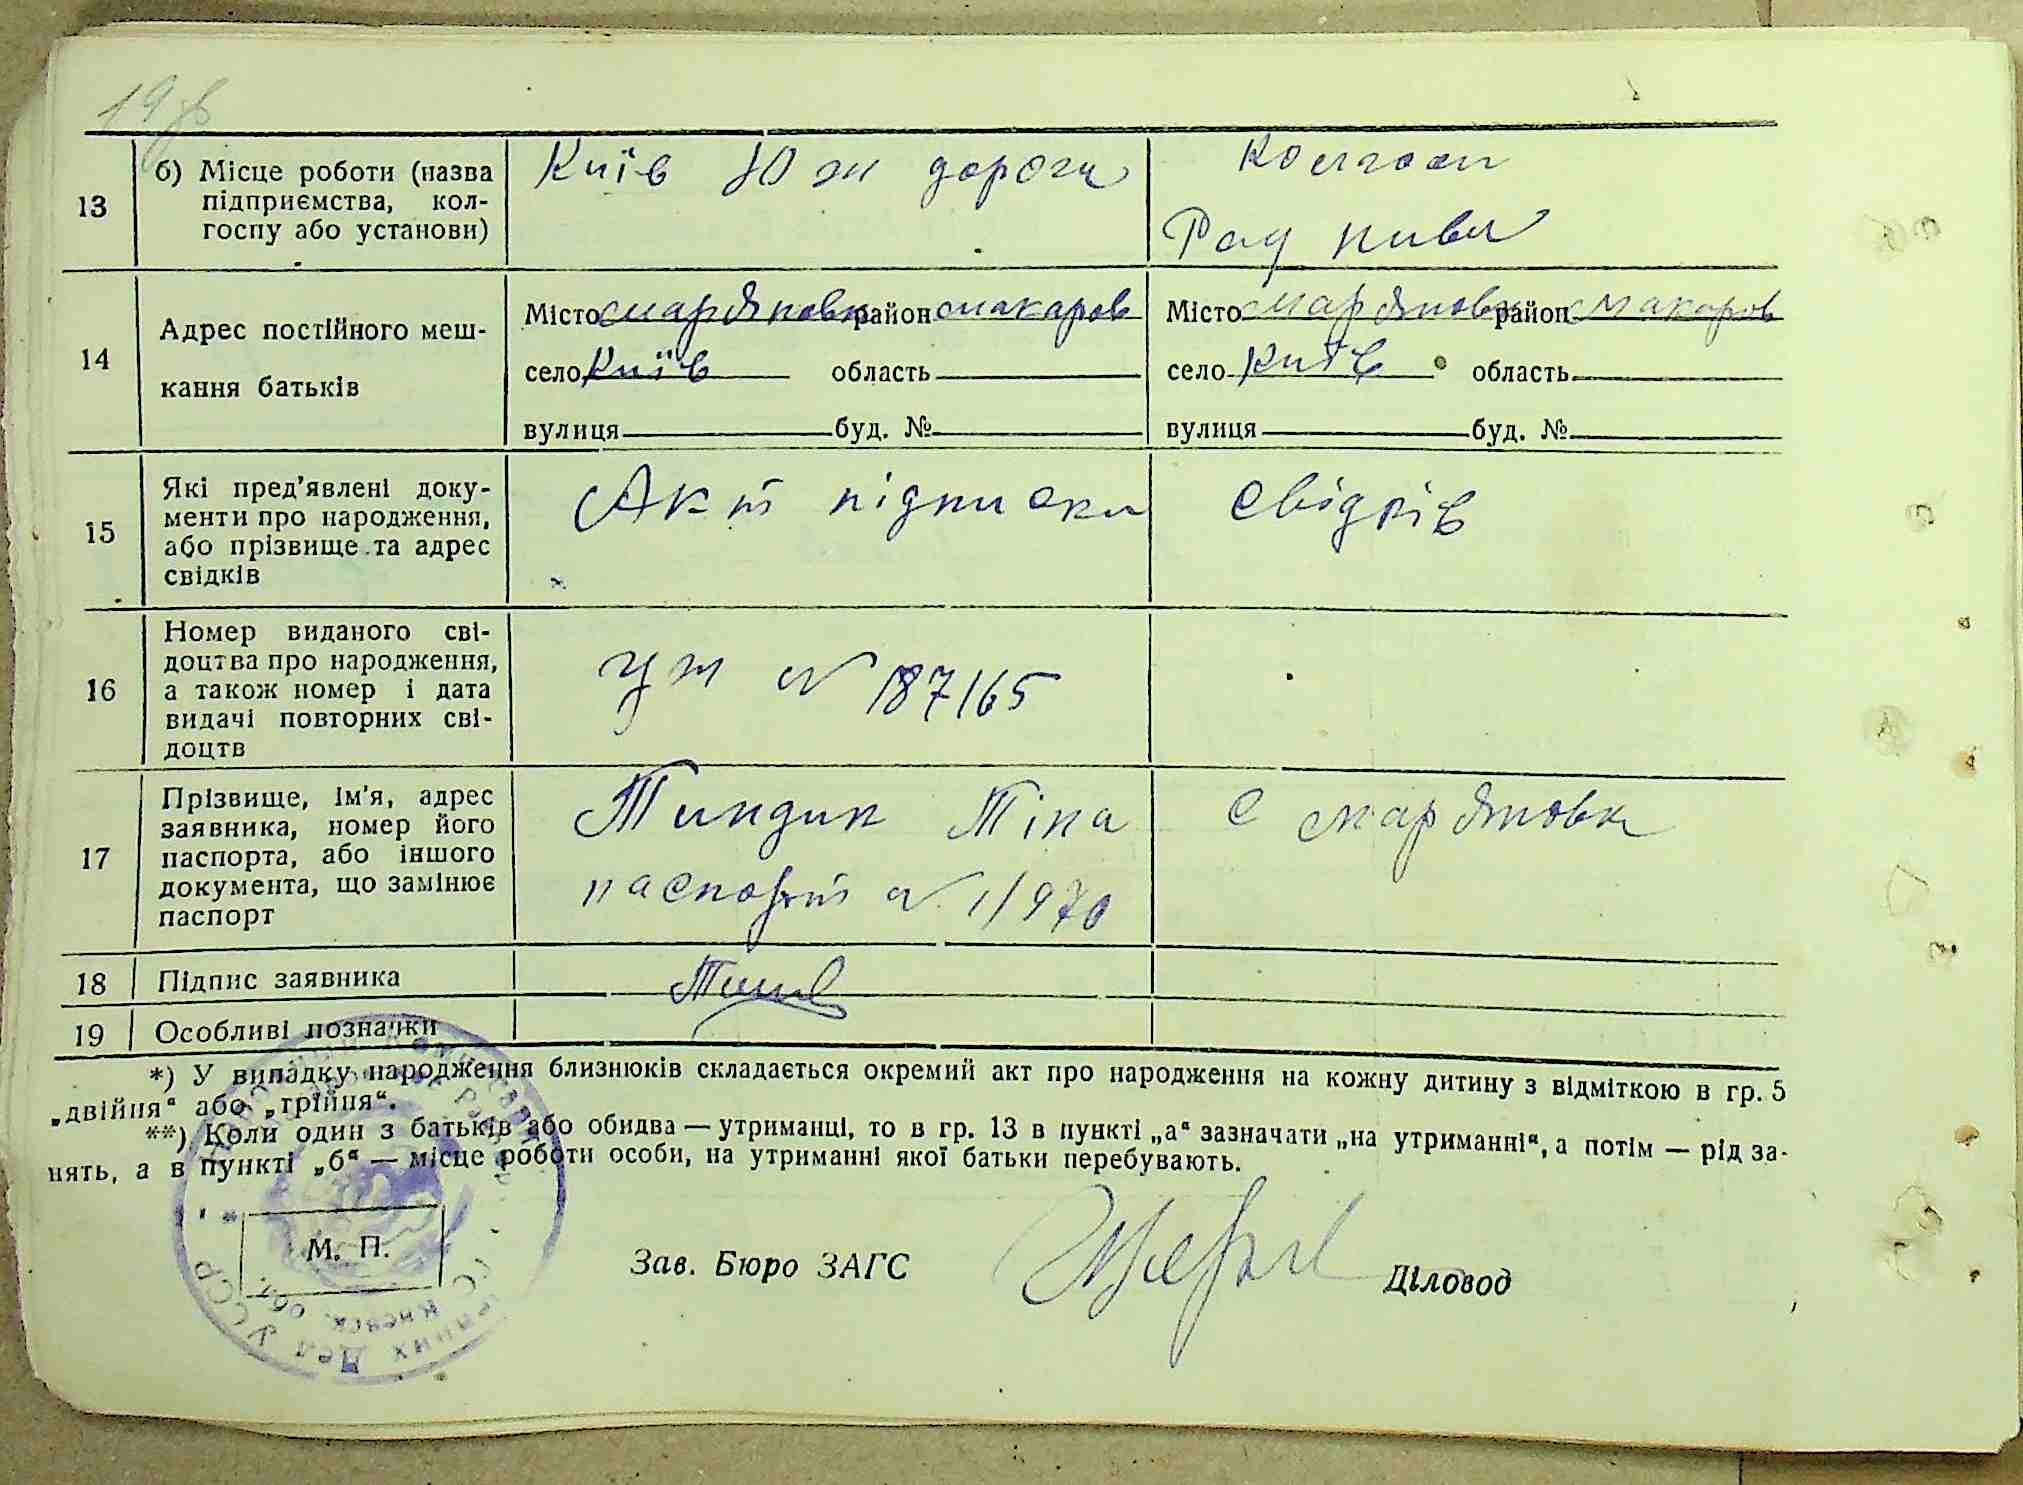 13
б) Місце роботи (назва
підприємства, кол-
госпу або установи)
Київ Юж дороги
Колгосп
Рад нива
14
Адрес постійного меш-
кання батьків
Місто Мар'яновка район Макаров
село Київ область
вулиця буд. №
Місто Мар'яновка район Макаров
село Київ область
вулиця буд. №
15
Які пред'явлені доку-
менти про народження,
або прізвище та адрес
свідків
Акт підписка свідків
16
Номер виданого сві-
доцтва про народження,
а також номер і дата
видачі повторних сві-
доцтв
N 187165
17
Прізвище, ім'я, адрес
заявника, номер його
паспорта, або іншого
документа, що замінює
паспорт
с Мар'яновка
паспорт N 1/970
18
Підпис заявника
19
Особливі позначки
*) У випадку народження близнюків складається окремий акт про народження на кожну дитину з відміткою в гр. 5
„двійня“ або „трійня“.
**) Коли один з батьків або обидва — утриманці, то в гр. 13 в пункті „а“ зазначати „на утриманні“, а потім — рід за-
нять, а в пункті „б“ — місце роботи особи, на утриманні якої батьки перебувають.
М. П.
Зав. Бюро ЗАГС
Діловод